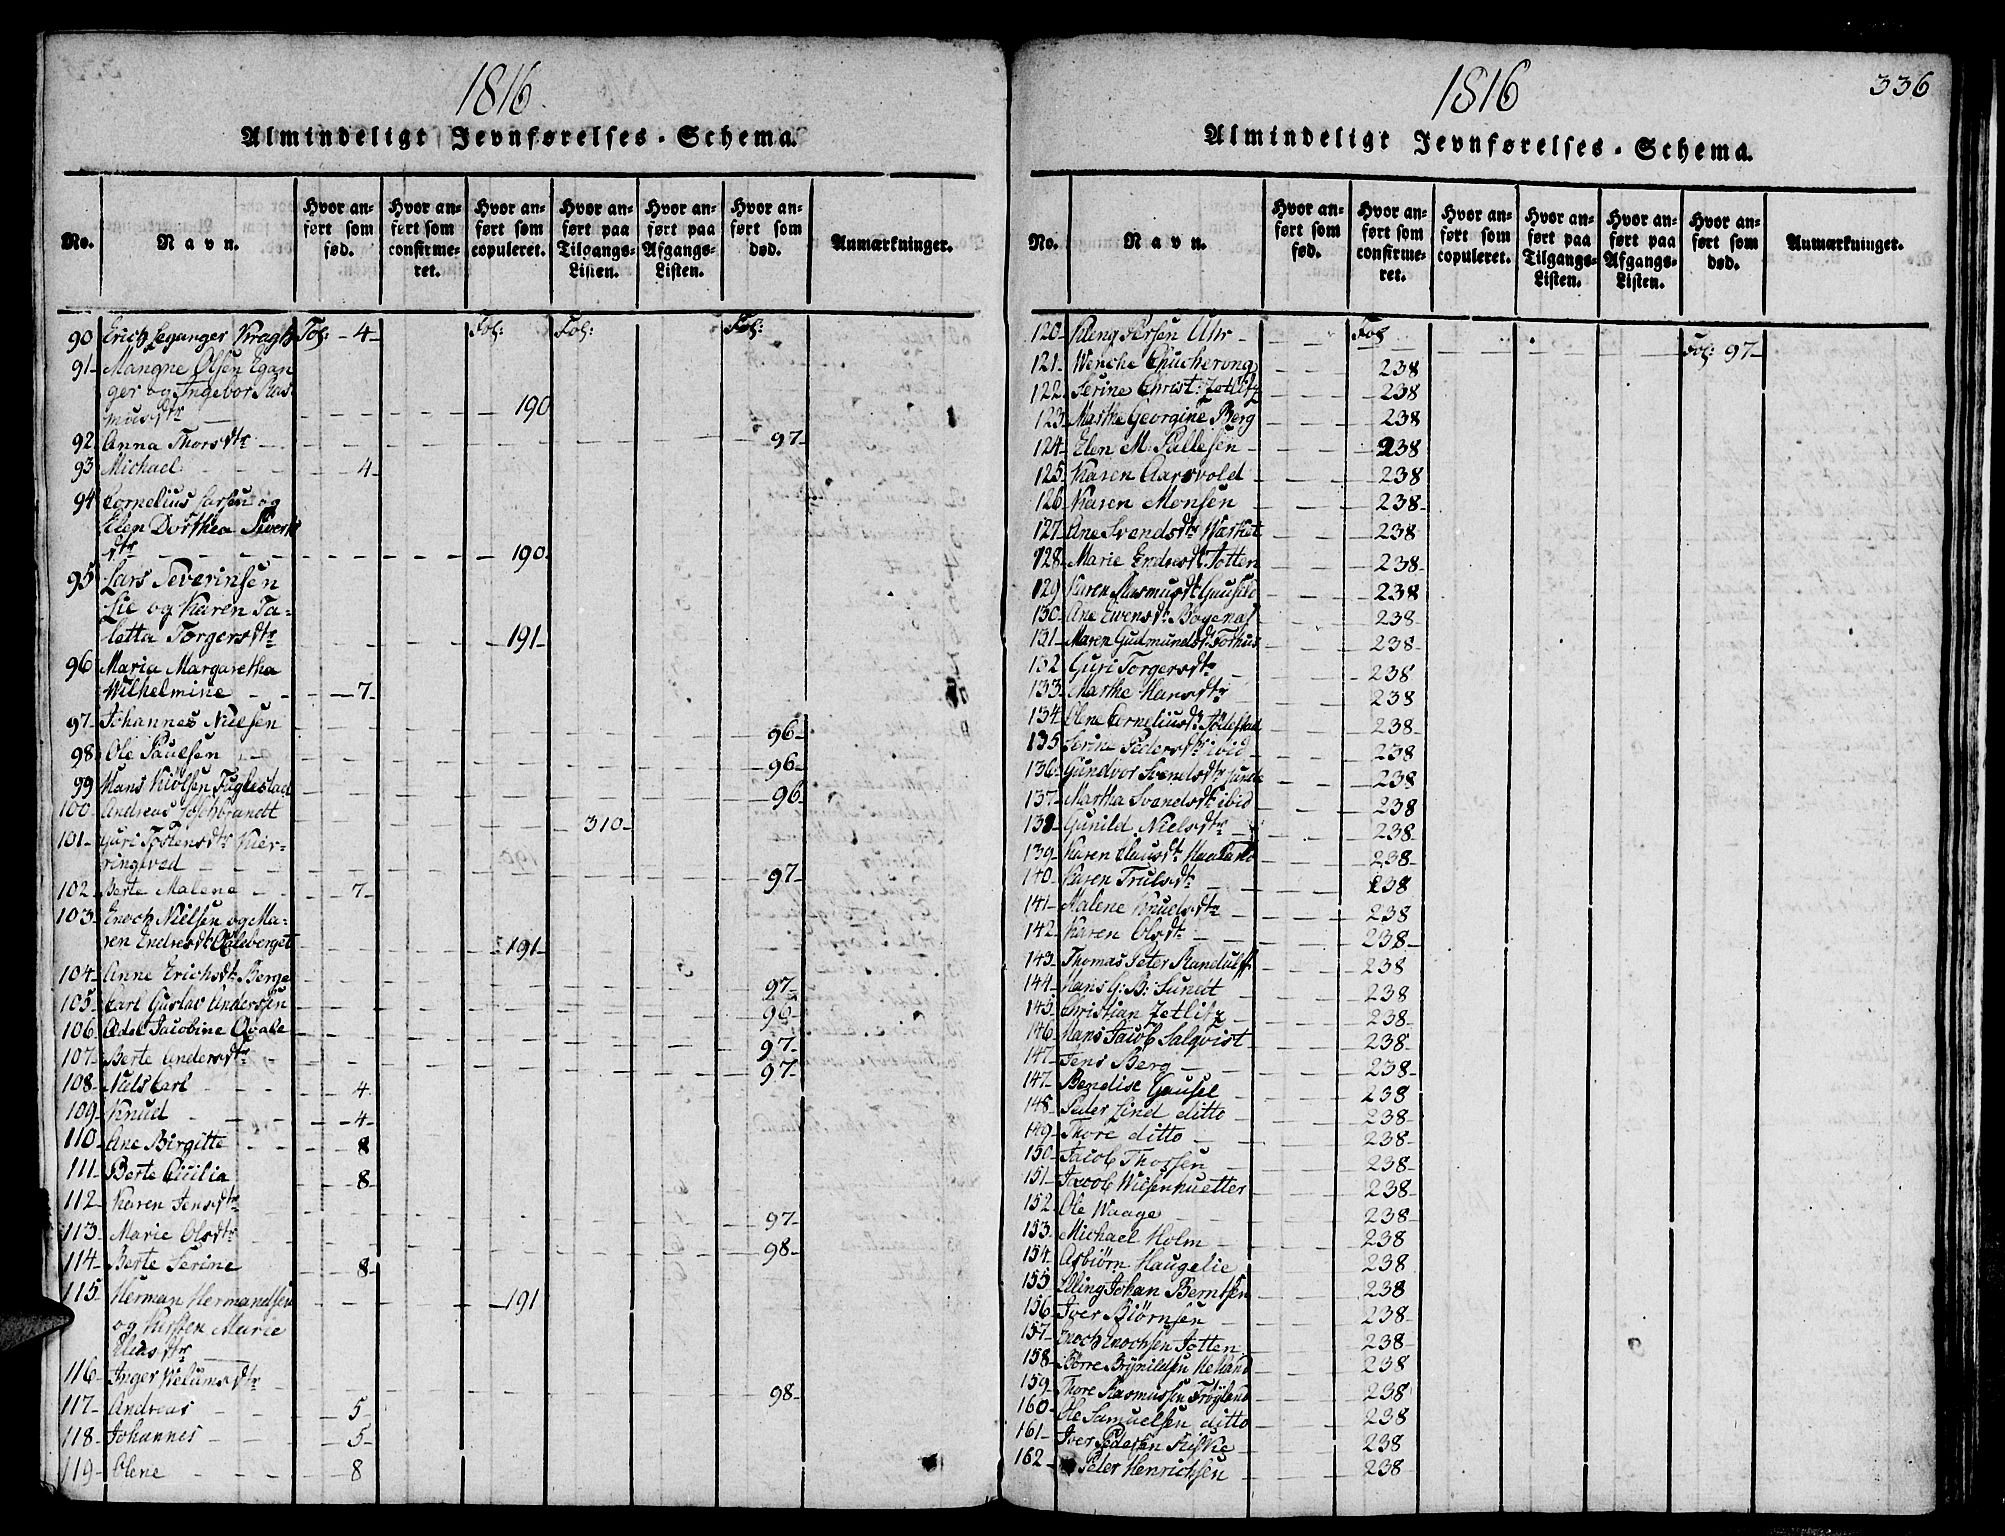 1816.
Almindeligt Jevnførelses-Schema.
No.
Navn.
Hvor an-
ført som
fød.
Hvor an-
ført som
confirme-
ret.
Hvor an-
ført som
copuleret.
Hvor an-
ført paa
Tilgangs-
Listen.
Hvor an-
ført paa
Afgangs-
Listen.
Hvor an-
ført som
død.
Anmærkninger.
90 Erich Leganger Kragh Fol: 4 Fol: Fol: Fol:
91 Mangne Olsen Egan
ger og Ingebor Ras
musdtr 190
92 Anna Thorsdtr 97
93 Michael 4
94 Cornelius Larsen og
Elen Dorthea Sivert
dtr 190
95 Lars Severinsen
Lie og Karen Ta-
letta Torgersdtr 191
96 Maria Margaretha
Wilhelmine 7
97 Johannes Nielsen 96
98 Ole Paulsen 96
99 Hans Kiölsen Fuglestad 96
100 Andreas 310
101 Guri Tostensdtr Kier-
ringevad 97
102 Berte Malene 7
103 Enoch Nielsen og Ma-
ren Endresdtr 191
104 Anne Erichsdtr Berge 97
105 Carl Gustav Anderssen 96
106 Adel Jacobine Qvale 97
107 Berte Andersdtr 97
108 Niels Carl 4
109 Knud 4
110 Ane Birgitte 8
111 Berte Cicilia 8
112 Karen Jensdtr 97
113 Marie Olsdtr 98
114 Berte Serine 8
115 Herman Hermandsen 191
og Kirsten Marie
Eliasdtr
116 Inger Welumsdtr 98
117 Andreas 5
118 Johannes 5
119 Olene 8
1816
336
Almindeligt Jevnførelses-Schema.
No.
Navn.
Hvor an-
ført som
fød.
Hvor an-
ført som
confirme-
ret.
Hvor an-
ført som
copuleret.
Hvor an-
ført paa
Tilgangs-
Listen.
Hvor an-
ført paa
Afgangs-
Listen.
Hvor an-
ført som
død.
Anmærkninger.
120 Kleng Fol Fol: 97
121 Wenche 238
122 Serine Christ: Zetlitz 238
123 Marthe Georgine Berg 238
124 Elen M: Pallesen 238
125 Karen Aarsvold 238
126 Karen Monsen 238
127 Ane Svendsdtr 238
128 Marie Endresdtr Totten 238
129 Karen Rasmusdtr Gausele 238
130 Ane Evensdtr 238
131 Maren Gudmundsdtr 238
132 Guri Torgersdtr 238
133 Marthe Hansdtr 238
134 Olene Corneliusdtr 238
135 Serine Pedersdtr ibid 238
136 Gundvor Svendsdtr Sunde 238
137 Martha Svendsdtr ibid 238
138 Gunild Nielsdtr 238
139 Karen Clausdtr 238
140 Karen Trulsdtr 238
141 Malene Knudsdtr 238
142 Karen Olsdtr 238
143 Thomas Peter Randulff 238
144 Hans G: B: Sundt 238
145 Christian Zetlitz 238
146 Hans Jacob Salqvist 238
147 Jens Berg 238
147 Bendise Gausel 238
148 Peder Lind ditto 238
149 Thore ditto 238
150 Jacob Thorsen 238
151 Jacob 238
152 Ole Waage 238
153 Michael Holm 238
154 Asbiørn Haugelie 238
155 Elling Johan Berntsen 238
156 Iver Biørnsen 238
157 Enoch Enochsen Totten 238
158 Børre Brynildsen 238
159 Thore Rasmussen Frøyland 238
160 Ole Samuelsen ditto 238
161 Iver Pedersen 238
162 Peter Henrichsen 238